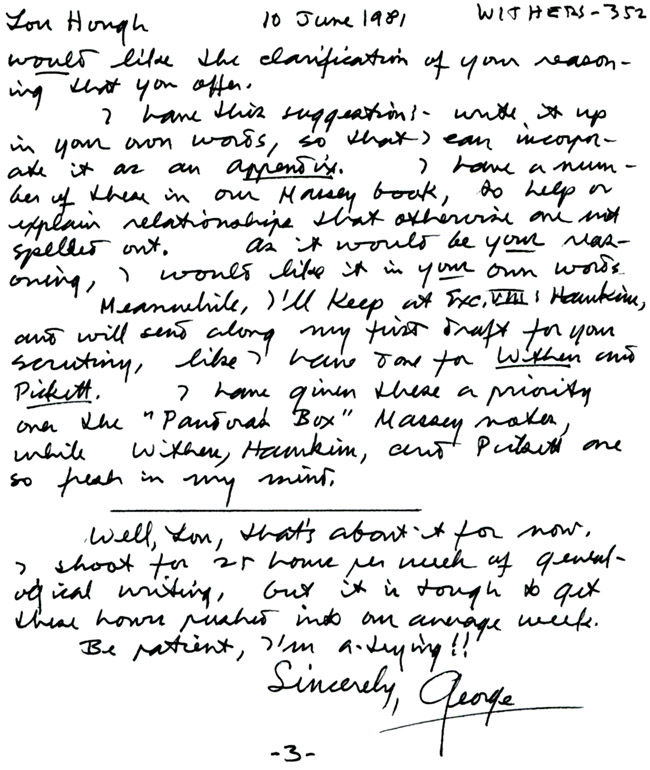 Lon Hough 10 June 1981 WITHERS-352
would like the clarification of your reason-
ing that you offer.
I have this suggestion:- write it up
in your own words, so that I can incorpor-
ate it as an appendix. I have a num-
ber of these in our Massey book, to help or
explain relationships that otherwise are not
spelled out. As it would be your reas-
oning, I would like it in your own words.
Meanwhile, I'll keep at Exc. VIII: Hawkins,
and will send along my first draft for your
scrutiny, like I have done for Withers and
Pickett. I have given these a priority
over the "Pandoras Box" Massey notes,
while Withers, Hawkins, and Pickett are
so fresh in my mind.
Well, Lon, that's about it for now.
I shoot for 25 hours per week of geneal-
ogical writing, but it is tough to get
these hours pushed into an average week.
Be patient, I'm a-trying!!
Sincerely, George
-3-